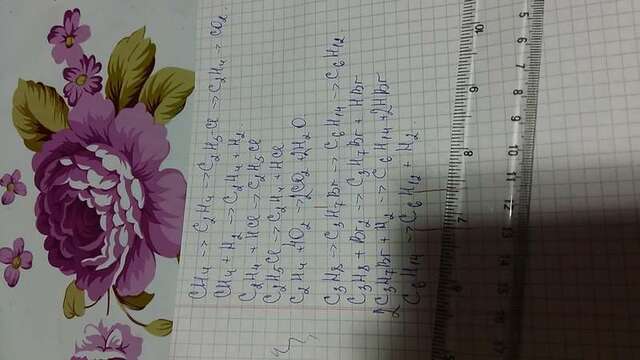 CH4 -> C2H4 -> C2H5Cl -> C2H4 -> CO2.
CH4 + H2 -> C2H4 + H2
C2H4 + HCl -> C2H5Cl
C2H5Cl -> C2H4 + HCl
C2H4 + O2 -> 2CO2 + 2H2O
C3H8 -> C3H7Br -> C6H14 -> C6H12
C3H8 + Br2 -> C3H7Br + HBr
2C3H7Br + H2 -> C6H14 + 2HBr
C6H14 -> C6H12 + H2
5
6
7
8
9
10
11
12
13
10
9
8
7
6